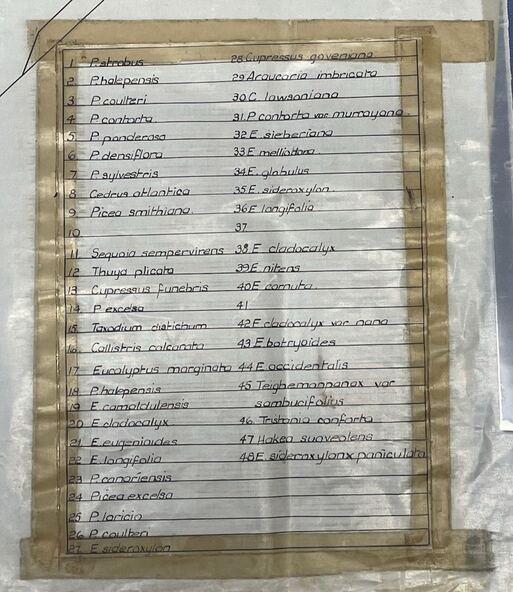 1 P. strobus
2 P. halepensis
3 P. coulteri
4 P. contorta.
5 P. ponderosa
6 P. densiflora
7 P. sylvestris
8 Cedrus atlantica
9 Picea smithiana.
10
11 Sequoia sempervirens
12 Thuya plicata
13 Cupressus funebris
14 P. excelsa
15 Taxodium distichum
16. Callistris calcarata
17 Eucalyptus marginata
18 P. halepensis
19 E. camaldulensis
20 E. cladocalyx
21 E. eugenioides
22 E. longifolia
23 P. canariensis
24 Picea excelsa
25 P. laricio
26 P. coulteri
27 E. sideroxylon
28 Cupressus goveniana
29 Araucaria imbricata
30 C. lawsoniana
31 P. contorta var murrayana
32 E. sieberiana
33 E. melliodora
34 E. globulus
35 E. sideroxylon.
36 E. longifolia
37
38. E. cladocalyx
39 E. nitens
40 E. cornuta.
41
42 E. cladocalyx var nana
43 E. botryoides
44 E. occidentalis
45 Teighemannanax var
sambucifolius
46. Tristania conferta
47 Hakea suaveolens
48 E. sideroxylonx paniculata